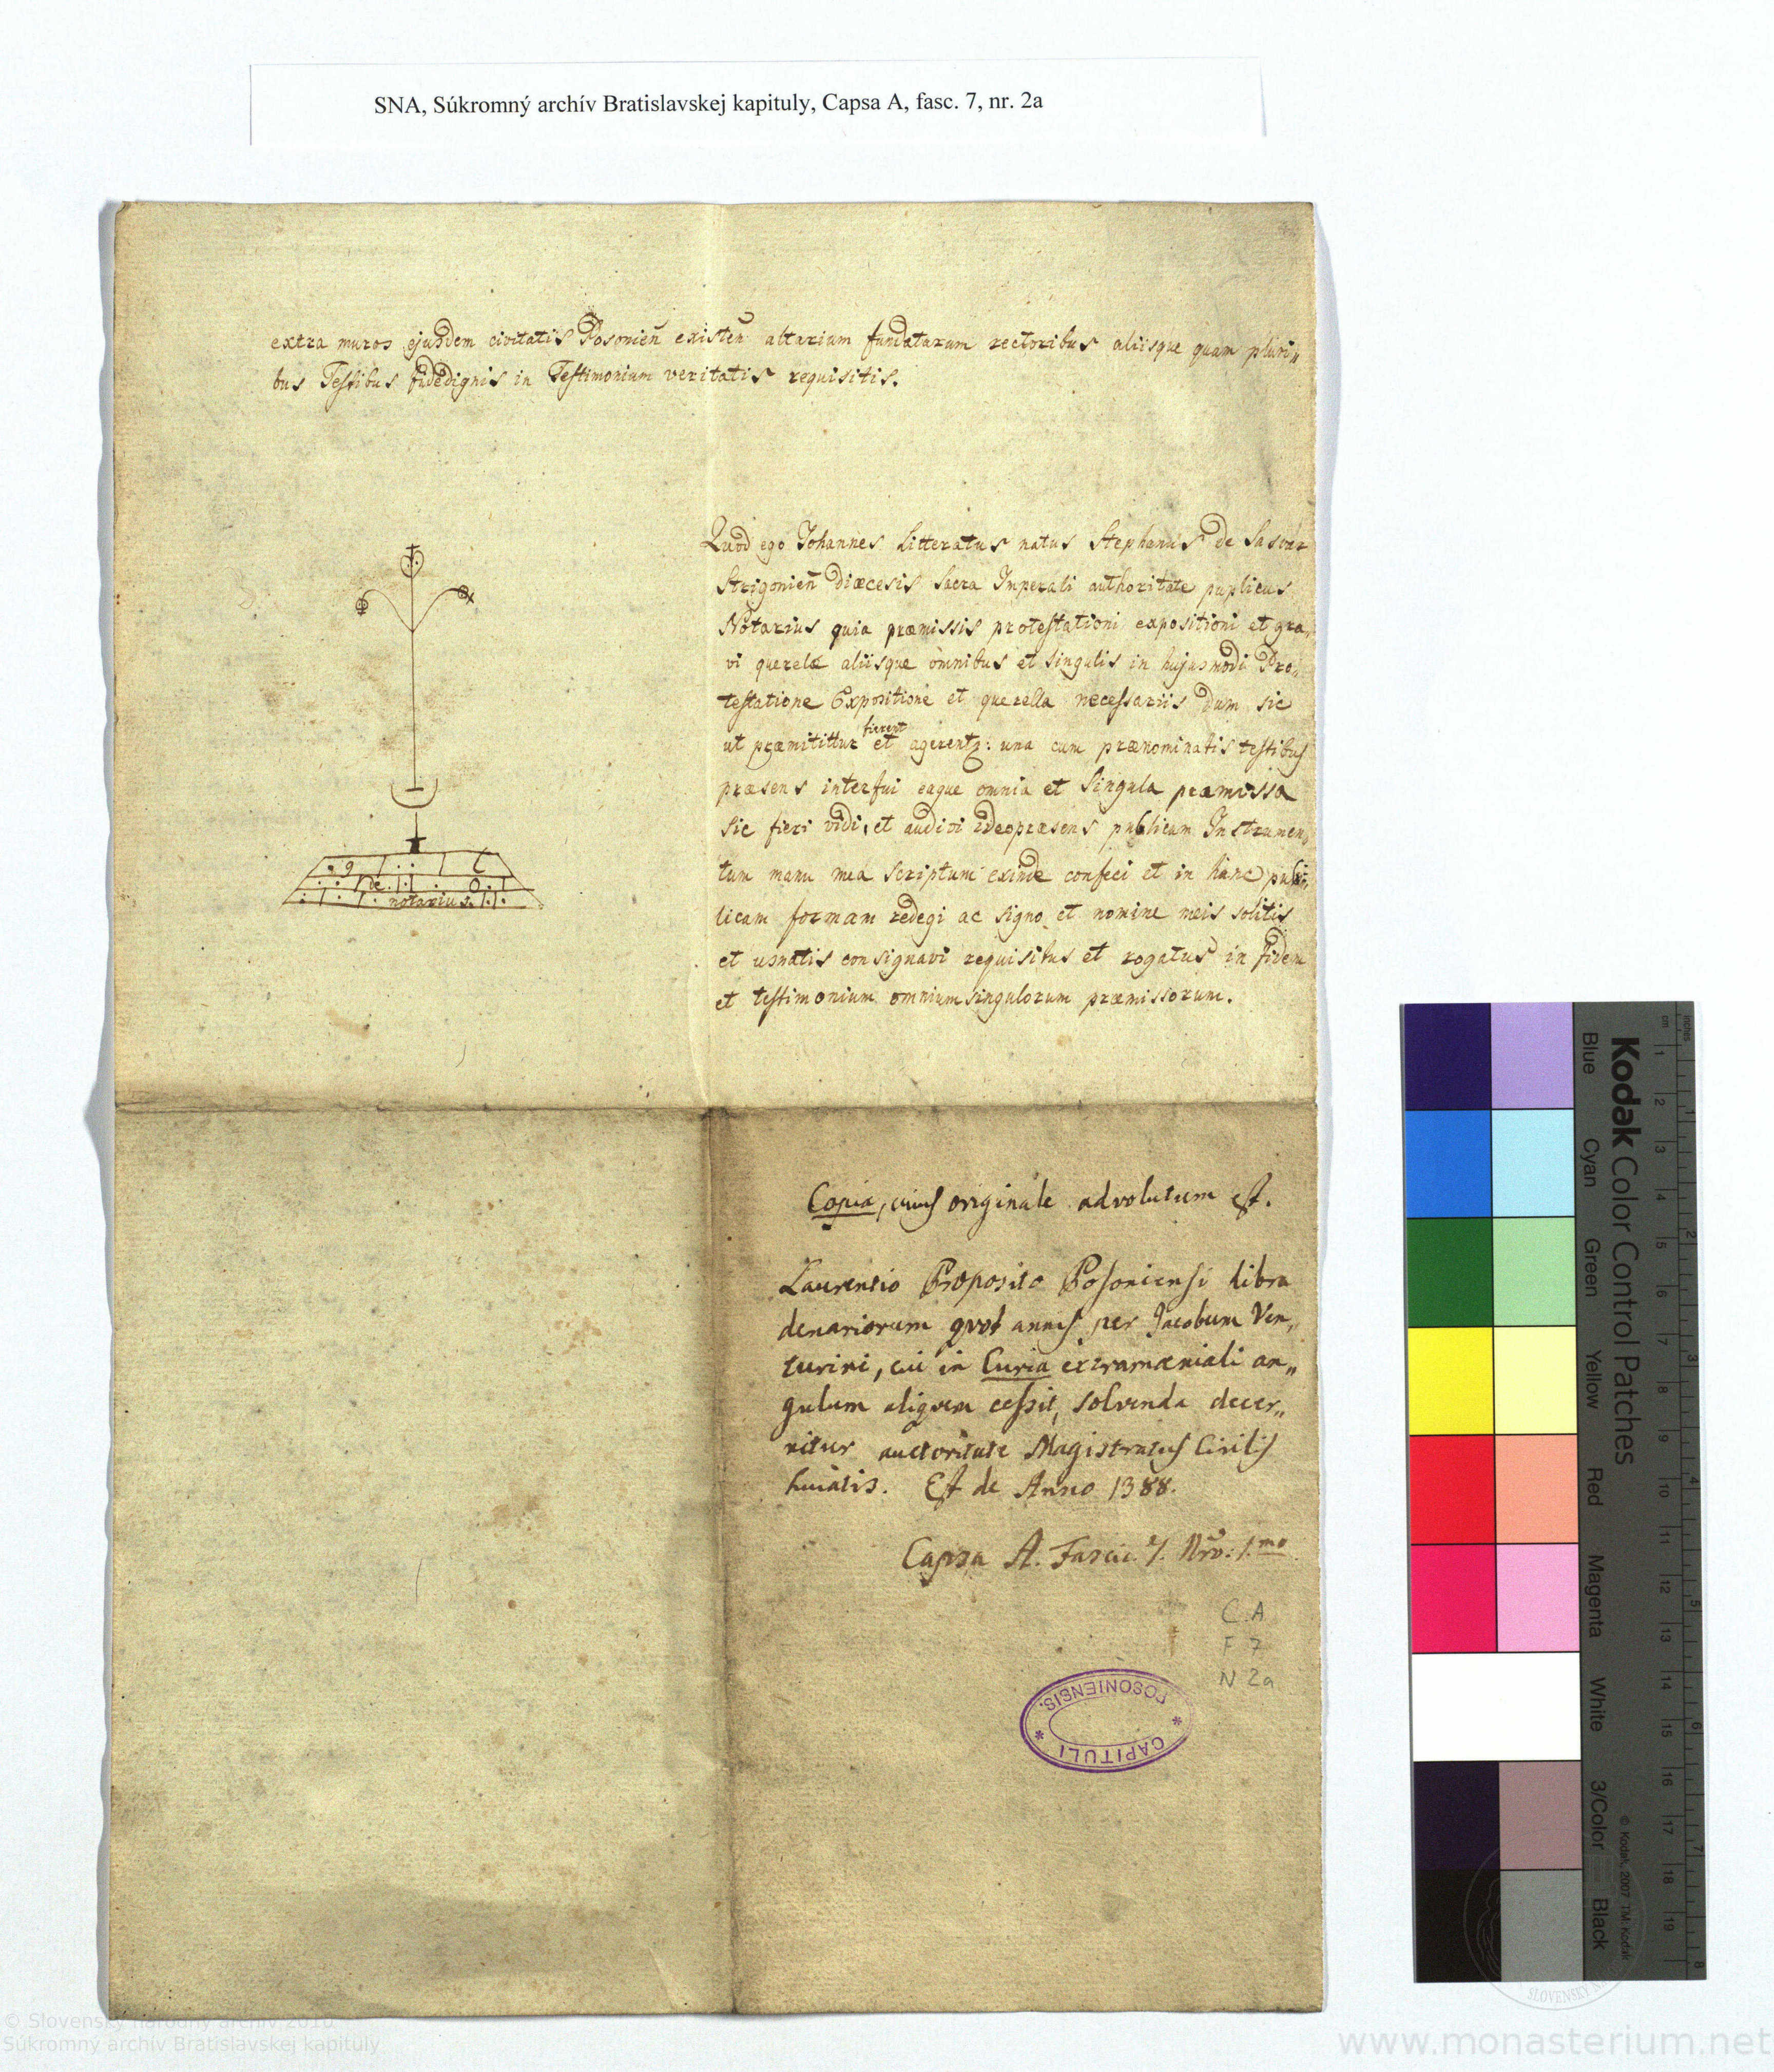 SNA, Súkromný archív Bratislavskej kapituly, Capsa A, fasc. 7, nr. 2a
extra muros ejusdem civitatis Posonien̄ existen̄ altarium fundatarum rectoribus aliisque quam pluri„
bus Testibus fidedignis in Testimonium veritatis requisitis.
Quod ego Johannes Litteratus natus Stephanus de Sasvar
Strigonien̄ Diœcesis Sacra Imperali authoritate puplicus
Notarius quia præmissis protestationi expositioni et gra„
vi querelæ aliisque omnibus et singulis in hujusmodi Pro„
testatione Expositione et querella necessariis dum sic
fierent
ut præmitittur et agerentz: una cum prænominatis testibus
præsens interfui eaque omnia et Singula præmissa
Sic fieri vidi, et audivi ideo præsens publicum Instrumen„
tum manu mea scriptum exinde confeci et in hanc pub„
licam formam redegi ac signo et nomine meis solitis
et usnatis consignavi requisitus et rogatus in fidem
et testimonium omnium singulorum præmissorum.
notarius
Copia, cuius originale advolutum est.
Laurentio Præposito Posoniensi libra
denariorum quot annis per Jacobum Ven„
turini, cui in Curia extramæniali an„
gulum aliquem cessit, solvenda decer„
nitur auctoritate Magistratus Civilis
huiatis. Est de Anno 1388.
Capsa A. Fascic. 7. Nro: 1.mo
C. A
F 7
N 2a
CAPITULI * POSONIENSIS. *
Kodak Color Control Patches
Blue Cyan Green Yellow Red Magenta White 3/Color Black
© Kodak, 2007 TM: Kodak
inches 1 2 3 4 5 6 7 8
cm 1 2 3 4 5 6 7 8 9 10 11 12 13 14 15 16 17 18 19
© Slovenský národný archív 2010
Súkromný archív Bratislavskej kapituly
www.monasterium.net